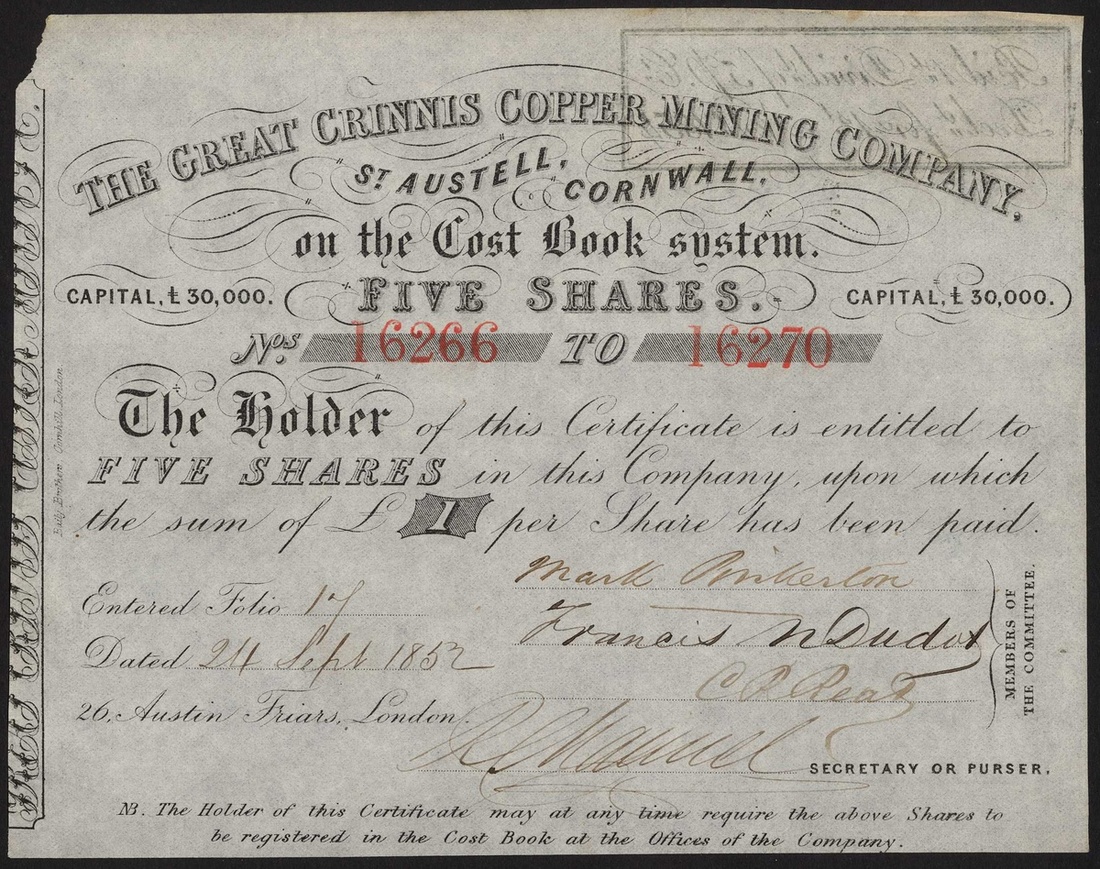 THE GREAT CRINNIS COPPER MINING COMPANY,
ST AUSTELL, CORNWALL,
on the Cost Book system.
CAPITAL, £30,000. FIVE SHARES. CAPITAL, £30,000.
Nos. 16266 TO 16270
The Holder of this Certificate is entitled to
FIVE SHARES in this Company, upon which
the sum of £1 per Share has been paid.
Mark Pinkerton
Entered Folio 17
Francis
Dated 24 Sept 1852
26, Austin Friars, London.
MEMBERS OF
THE COMMITTEE.
SECRETARY OR PURSER.
NB. The Holder of this Certificate may at any time require the above Shares to
be registered in the Cost Book at the Offices of the Company.
Cornhill, London.